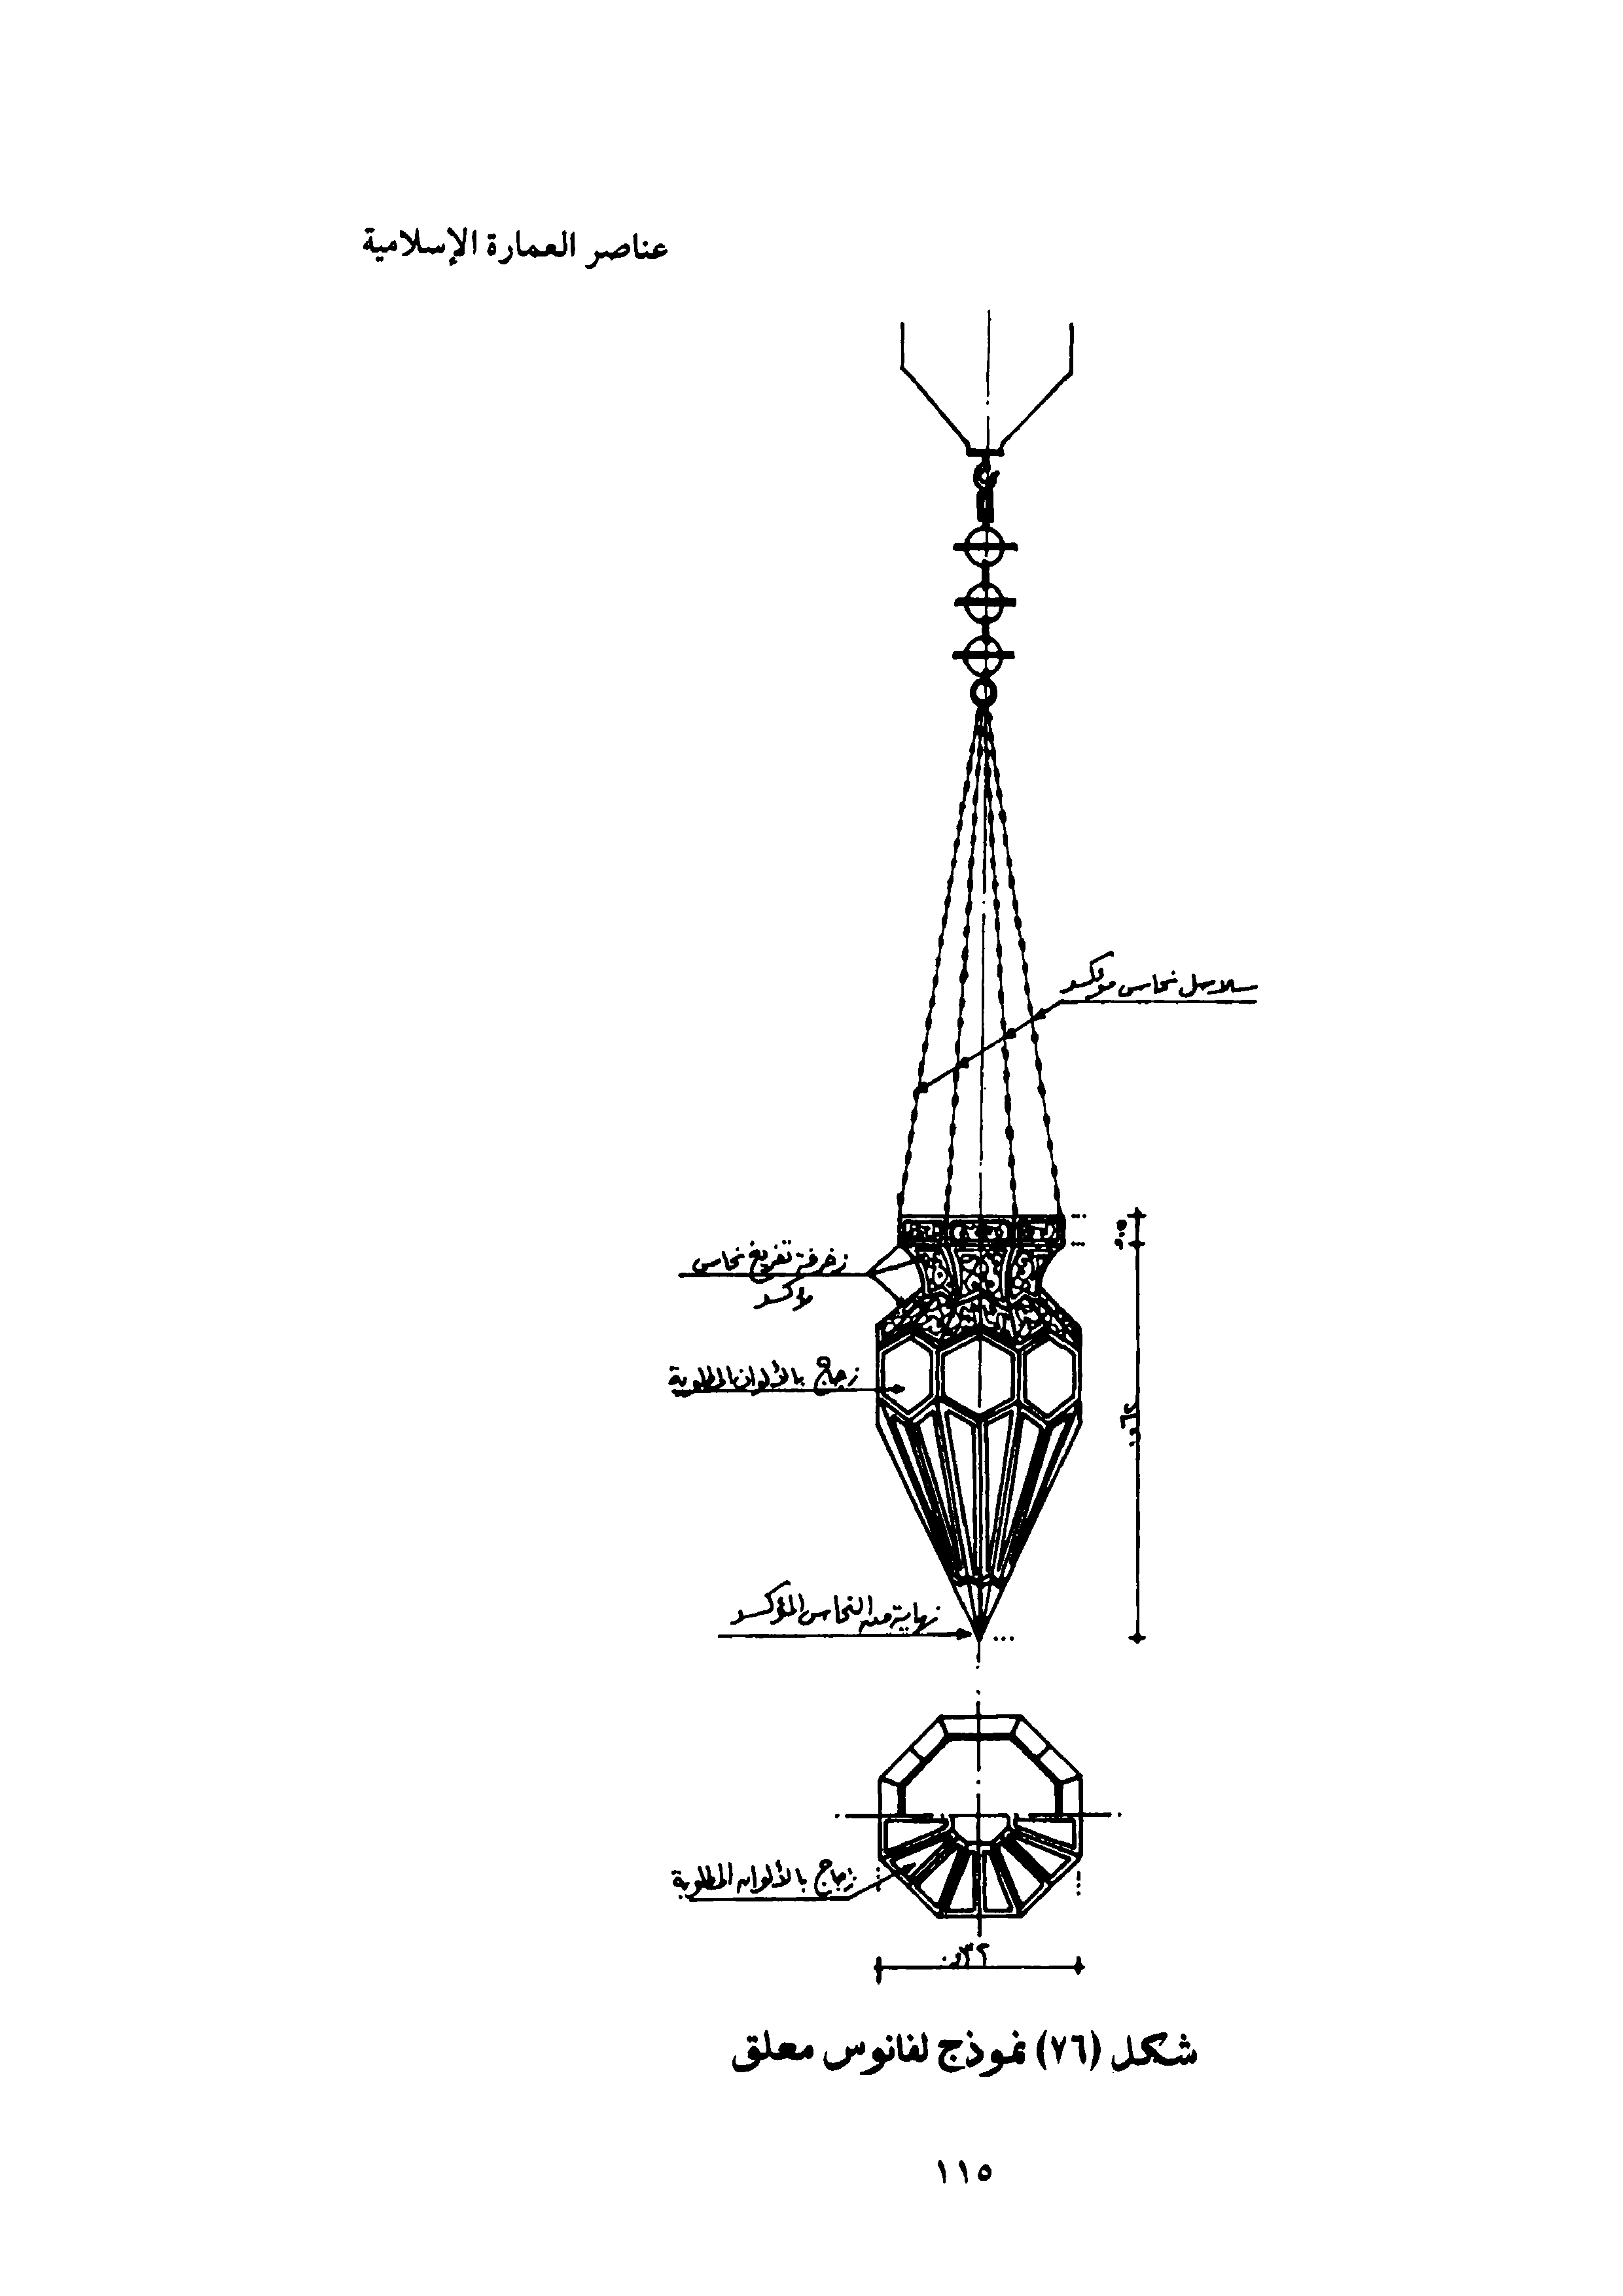 عناصر العمارة الإسلامية
سلاسل نحاس مؤكسد
زخرفة تفريغ نحاس
مؤكسد
زجاج بالألوان المطلوبة
نهاية من النحاس المؤكسد
زجاج بالألوان المطلوبة
٠٫٣٢
شكل (٧٦) نموذج لفانوس معلق
١١٥